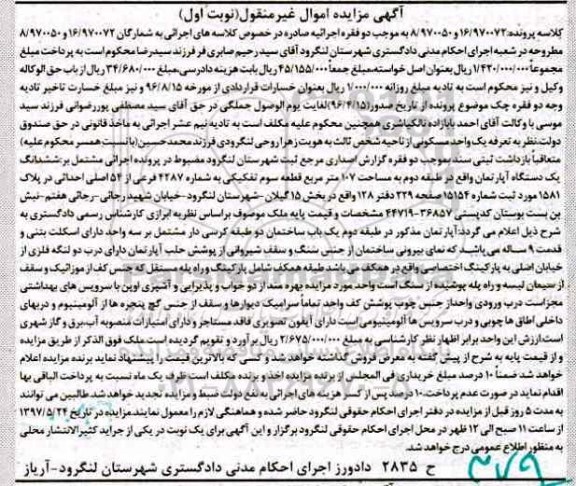 آگهی مزایده اموال غیرمنقول(نوبت اول)
کلاسه پرونده:۱۶/۹۷۰۰۷۲ و ۸/۹۷۰۰۵۰ به موجب دو فقره اجرائیه صادره در خصوص کلاسه های اجرائی به شمارگان ۱۶/۹۷۰۰۷۲ و ۸/۹۷۰۰۵۰
مطروحه در شعبه اجرای احکام مدنی دادگستری شهرستان لنگرود آقای سید رحیم صابری فر فرزند سیدرضا محکوم است به پرداخت مبلغ
مجموعاً ۱/۴۳۰/۰۰۰/۰۰۰ ریال بعنوان اصل خواسته،مبلغ جمعاً ۴۵/۱۵۵/۰۰۰ ریال بابت هزینه دادرسی،مبلغ ۳۴/۶۸۰/۰۰۰ ریال از باب حق الوکاله
وکیل و نیز محکوم است به تادیه مبلغ روزانه ۱/۰۰۰/۰۰۰ ریال بعنوان خسارات قراردادی از مورخه ۹۶/۸/۱۵ و نیز مبلغ خسارت تاخیر تادیه
وجه دو فقره چک موضوع پرونده از تاریخ صدور(۹۶/۴/۱۵)لغایت یوم الوصول جملگی در حق آقای سید مصطفی پوررضوانی فرزند سید
موسی با وکالت آقای احمد بابازاده بالکیاشری همچنین محکوم علیه مکلف است به تادیه نیم عشر اجرائی به ماخذ قانونی در حق صندوق
دولت،نظر به تعرفه یک واحد مسکونی از ناحیه شخص ثالث به هویت زهرا روحی لنگرودی فرزند محمدحسین(بانسبت همسر محکوم علیه)
متعاقباً بازداشت ثبتی سند بموجب دو فقره گزارش اصداری مرجع ثبت شهرستان لنگرود مضبوط در پرونده اجرائی مشتمل بر ششدانگ
یک دستگاه آپارتمان واقع در طبقه دوم به مساحت ۱۰۷ متر مربع قطعه سوم تفکیکی به شماره ۴۲۸۷ فرعی از ۵۴ اصلی احداثی در پلاک
۱۵۸۱ مورد ثبت شماره ۱۵۱۵۴ صفحه ۲۳۹ دفتر ۱۲۸ واقع در بخش ۱۵ گیلان-شهرستان لنگرود-خیابان شهید رجائی -رجائی هفتم-نبش
بن بست بوستان کدپستی ۳۶۸۵۷-۴۴۷۱۹ مشخصات و قیمت پایه ملک موصوف براساس نظریه ابرازی کارشناس رسمی دادگستری به
شرح ذیل اعلام می گردد:آپارتمان مذکور در طبقه دوم یک باب ساختمان دو طبقه کرسی دار مشتمل بر سه واحد دارای اسکلت بتنی و
قدمت ۹ ساله می باشید که نمای بیرونی ساختمان از جنس سنگ و سقف شیروانی از پوشش حلب آپارتمان دارای درب دو لنگه فلزی از
خیابان اصلی به پارکینگ اختصاصی واقع در همکف می باشد،طبقه همکف شامل پارکینگ و راه پله مستقل که جنس کف از موزائیک و سقف
از سیمان لیسه و راه پله پوشیده از سنگ است واحد مورد مزایده بهره مند از دو خواب و پذیرایی و آشپزی اوپن با سرویس های بهداشتی
مجزاست درب ورودی واحد از جنس چوب پوشش کف واحد تماماً سرامیک دیوارها و سقف از جنس گچ پنجره ها از آلومینیوم و دربهای
داخلی اطاق ها چوبی و درب سرویس ها آلومینیومی است دارای آیفون تصویری فاقد مستاجر و دارای امتیازات منصوبه آب،برق و گاز شهری
است،ارزش این واحد برابر اظهار نظر کارشناسی به مبلغ ۲/۶۷۵/۰۰۰/۰۰۰ ریال برآورد و تقویم گردیده است ملک فوق الذکر از طریق مزایده
و از قیمت پایه به شرح از پیش گفته به معرض فروش گذاشته خواهد شد و کسانی که بالاترین قیمت را پیشنهاد نماید برنده مزایده اعلام
خواهد شد ضمناً ۱۰ درصد مبلغ خریداری فی المجلس از برنده مزایده اخذ و برنده مکلف است ظرف یک ماه نسبت به پرداخت الباقی بها
اقدام نماید در صورت عدم پرداخت،۱۰ درصد پس از کسر هزینه های اجرائی به نفع دولت ضبط و مزایده تجدید خواهد شد.طالبین می توانند
به مدت ۵ روز قبل از مزایده در دفتر اجرای احکام حقوقی لنگرود حاضر شده و هماهنگی لازم را معمول نمایند.مزایده در تاریخ ۱۳۹۷/۵/۲۴
از ساعت ۱۱ صبح الی ۱۲ ظهر در محل اجرای احکام حقوقی لنگرود برگزار و این آگهی برای یک نوبت در یکی از جراید کثیرالانتشار محلی
به منظور اطلاع عمومی درج خواهد شد.
ح ۲۸۳۵ دادورز اجرای احکام مدنی دادگستری شهرستان لنگرود-آریاز
۳۷۹